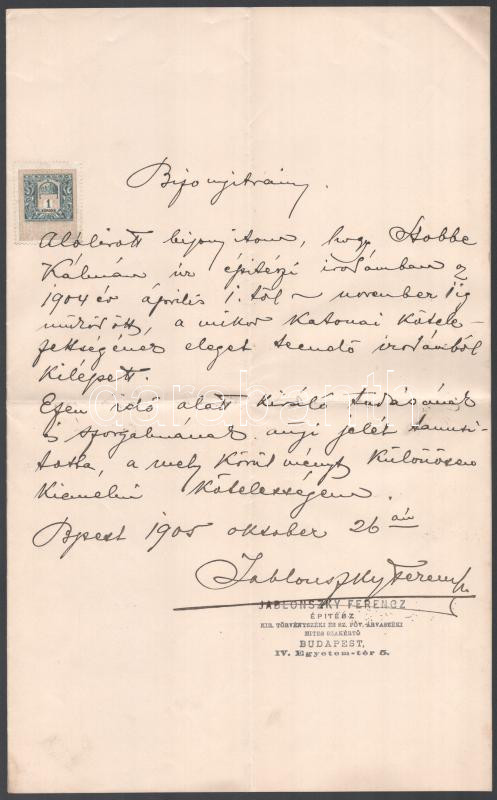 Bizonyitvány.
1
Alólirott bizonyitom, hogy Stobbe
Kálmán úr épitészi irodámban
1904 év április 1. től – november 1 ig
működött, a mikor katonai kötele-
zettségének eleget teendő irodámból
kilépett.
Ezen idő alatt kiváló tudásának
s szorgalmának anyi jelét tanusi-
totta, a mely körülményt különösen
kiemelni kötelességem.
Bpest 1905 oktober 26 án
Jablonszky Ferencz
JABLONSZKY FERENCZ
ÉPITÉSZ
KIR. TÖRVÉNYSZÉKI ÉS SZ. FŐV. ÁRVASZÉKI
HITES SZAKÉRTŐ
BUDAPEST,
IV. Egyetem-tér 5.
darabanth